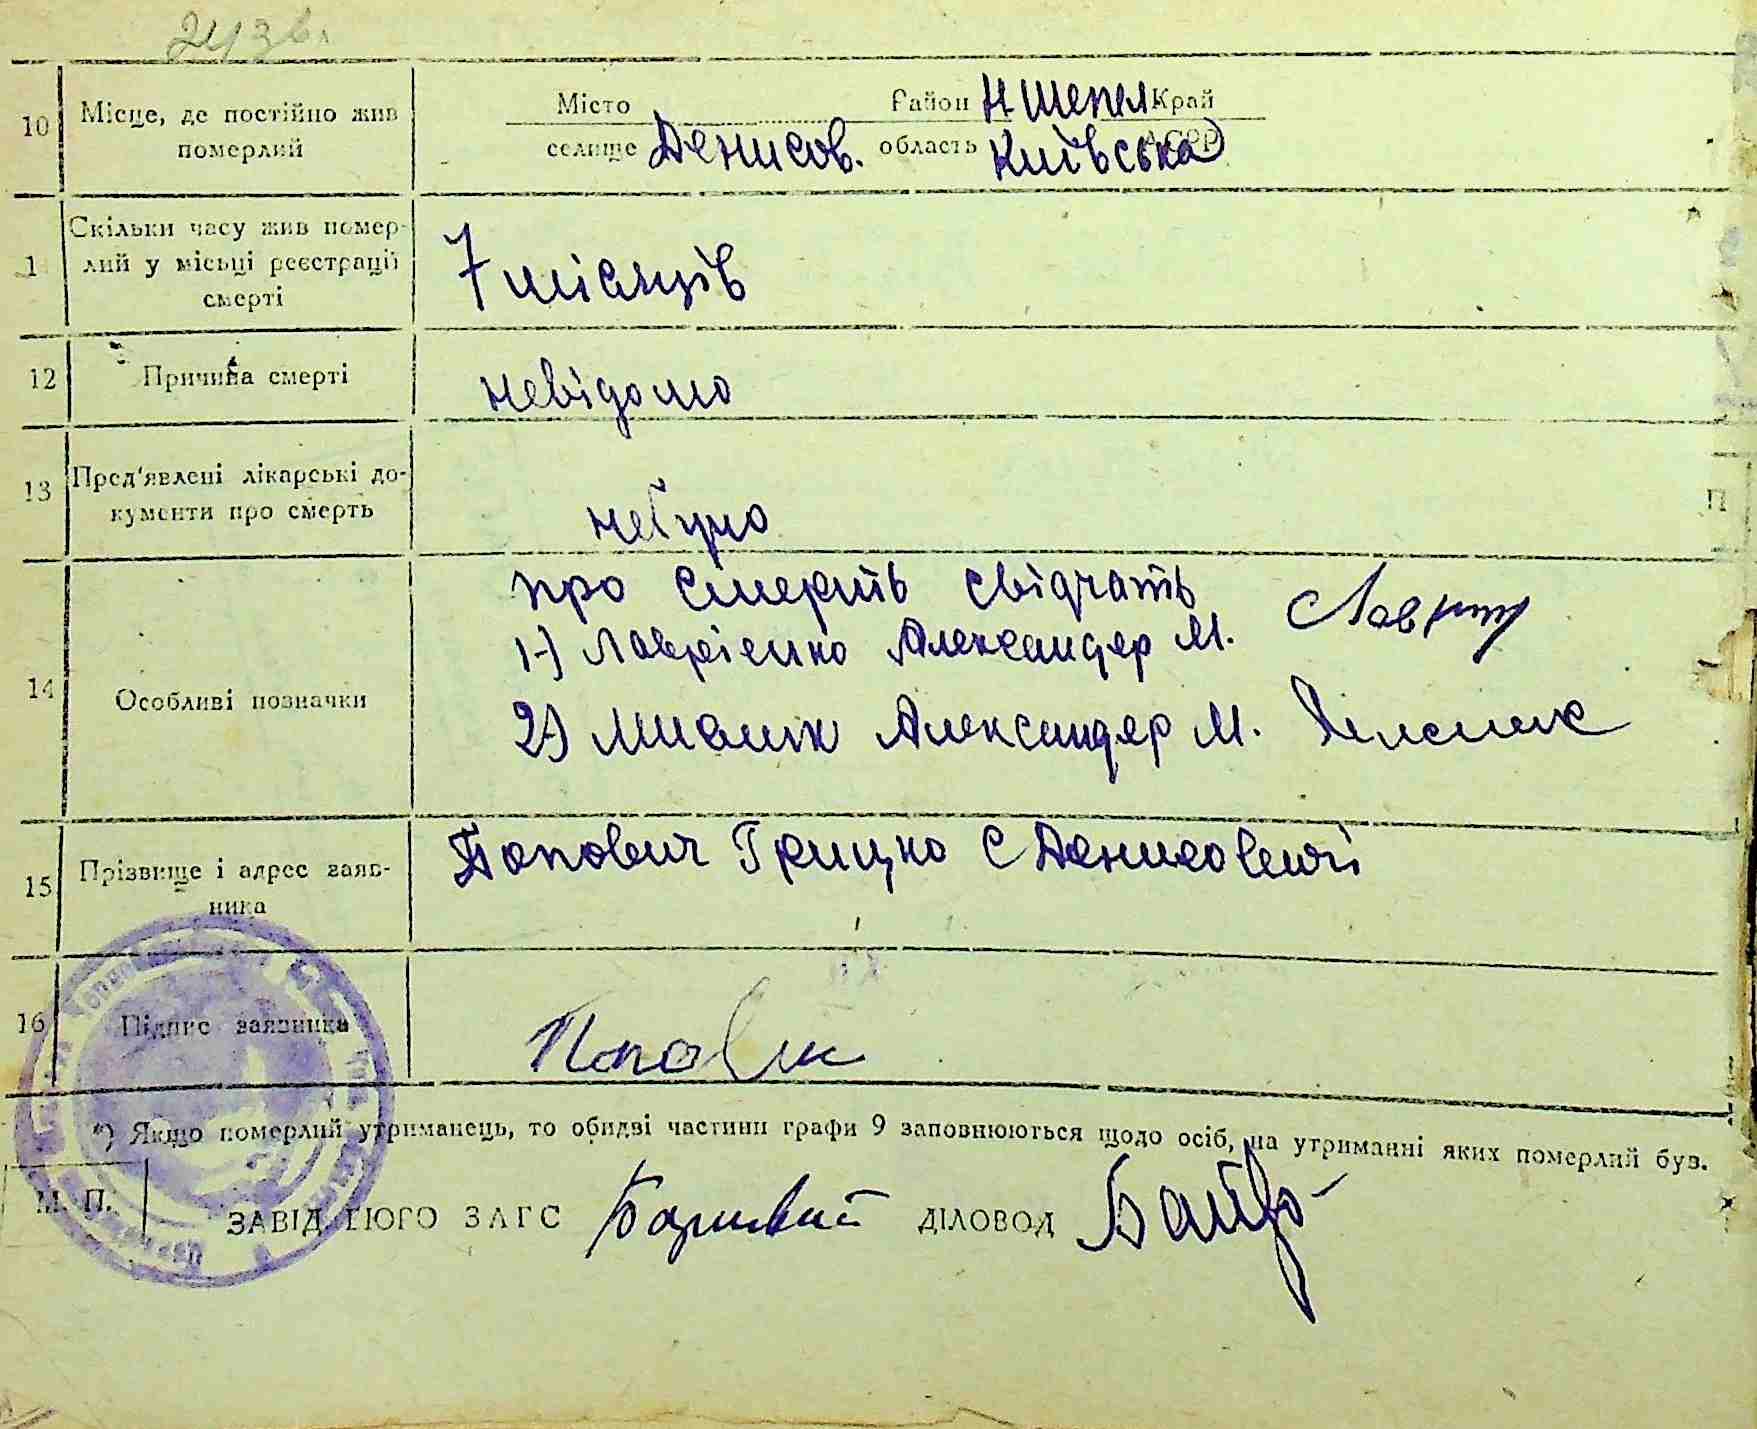 243 вл
10 Місце, де постійно жив померлий
Місто Район Н Шепел Край
селище Денисов. область Київська АССР
1 Скільки часу жив помер-
лий у місці реєстрації
смерті
7 місяців
12 Причина смерті
невідомо
13 Пред'явлені лікарські до-
кументи про смерть
небуло
14 Особливі позначки
про смерть свідчать
1) Лаврієнко Александер М.
2) Александер М.
15 Прізвище і адрес заяв-
ника
Попович Грицко с Денисовещі
16 Підпис заявника
Попович
*) Якщо померлий утриманець, то обидві частини графи 9 заповнюються щодо осіб, на утриманні яких померлий був.
М. П.
ЗАВІДУЮЧОГО ЗАГС ДІЛОВОД